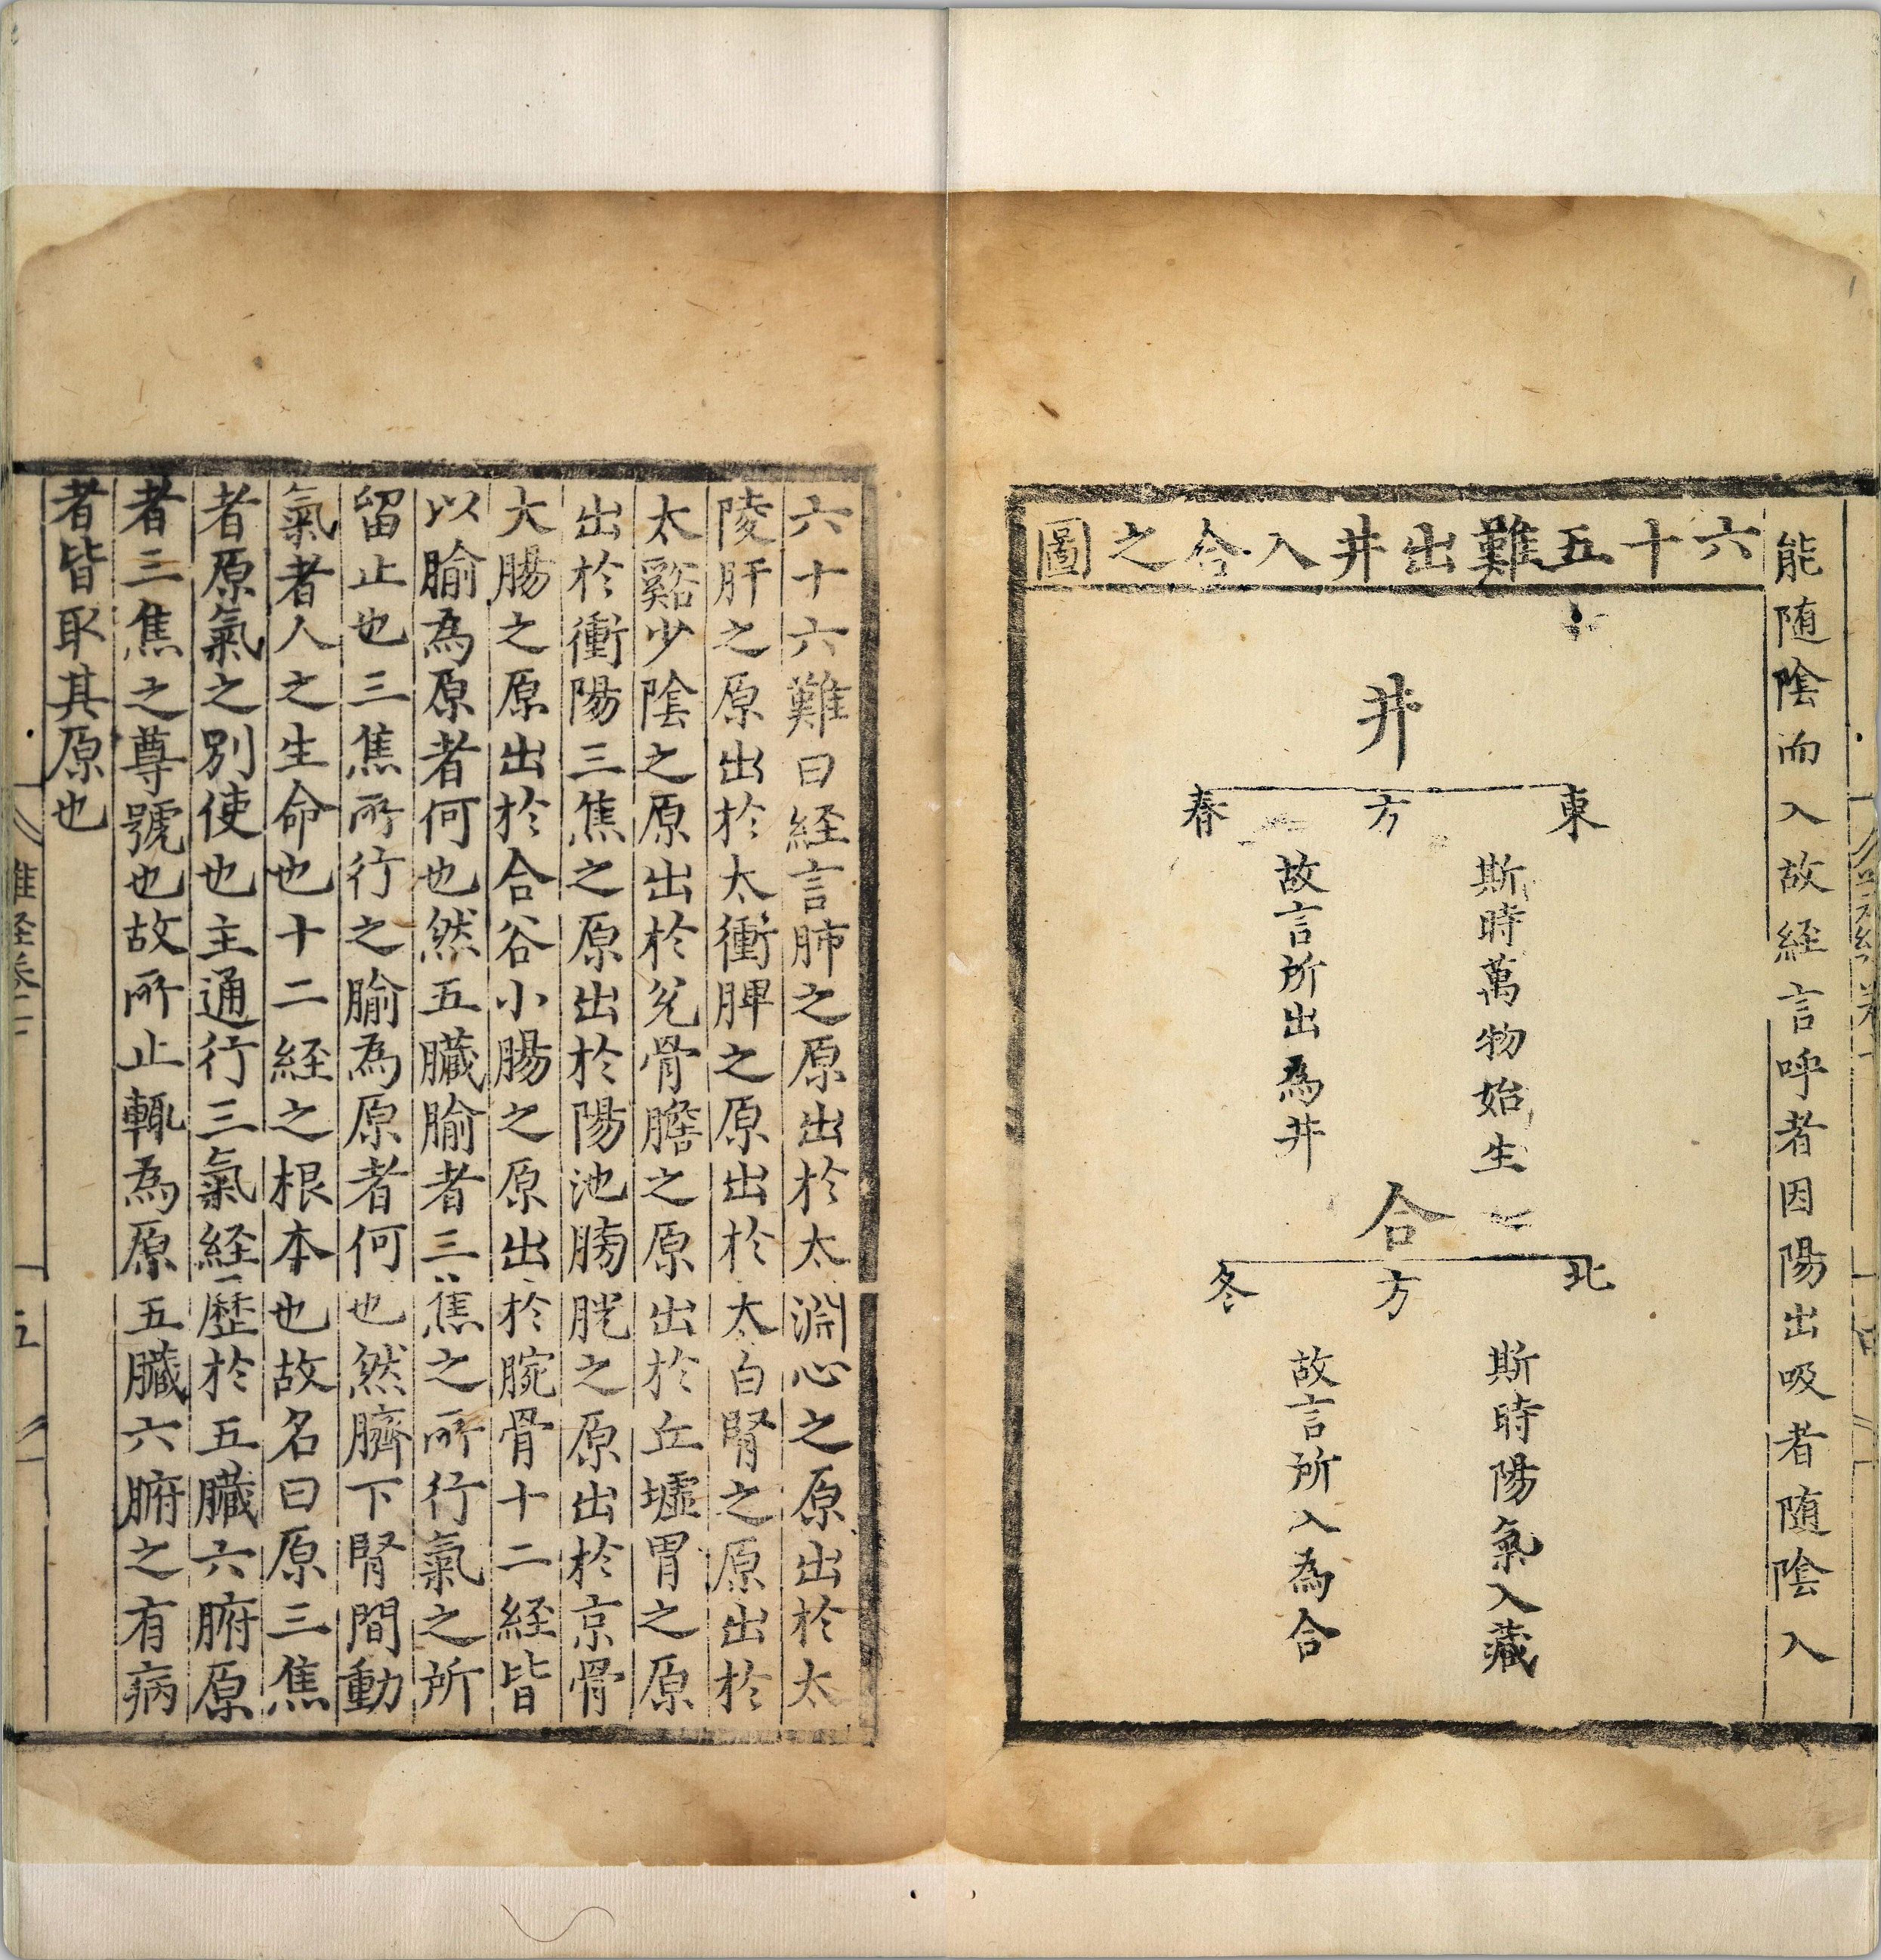 能随陰而入故経言呼者因陽出吸者随陰入
六十五難出井入合之圖
井
東方春
斯時萬物始生
故言所出為井
合
北方冬
斯時陽氣入藏
故言所入為合
六十六難曰経言肺之原出於太淵心之原出於太
陵肝之原出於太衝脾之原出於太白腎之原出於
太谿少陰之原出於兊骨膽之原出於丘墟胃之原
出於衝陽三焦之原出於陽池膀胱之原出於京骨
大腸之原出於合谷小腸之原出於腕骨十二経皆
以腧為原者何也然五臓腧者三焦之所行氣之所
留止也三焦所行之腧為原者何也然臍下腎間動
氣者人之生命也十二経之根本也故名曰原三焦
者原氣之別使也主通行三氣経歷於五臓六腑原
者三焦之尊號也故所止輒為原五臓六腑之有病
者皆取其原也